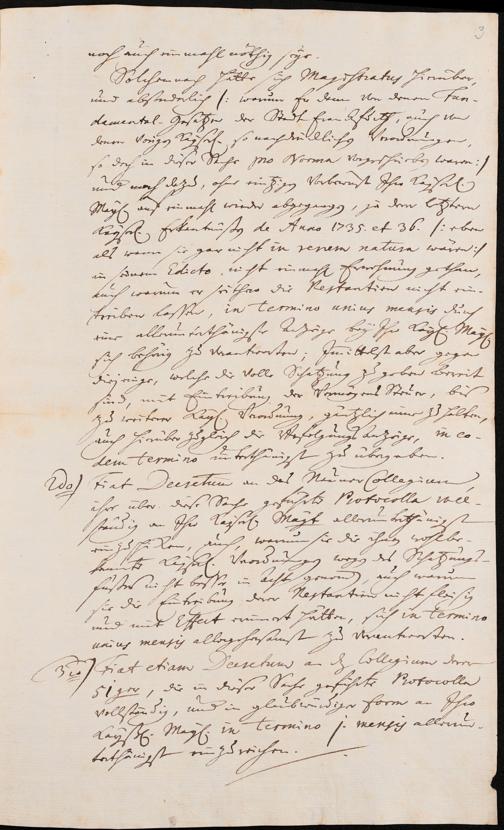 3
noch auch einmahl nöthig seye.
Solchemnach hätte sich Magistratus hierüber
und absonderlich /: warum Er dem von denen Fun-
damental Gesätzen der Stadt Franckfurth, auch von
denen vorigen Kayserl. so nachdrücklichen Verordnungen,
so doch in dieser Sache pro Norma vorgeschrieben waren :/
nunc noch dazu, ohne einzigen Vorbewust Ihro Kayserl.
Mayt. auf einmahl wieder abgegangen, ja derer letztern
Kayserl. Erkäntnüße de Anno 1735. et 36. /: eben
als wann sie gar nicht in rerum natura wären :/
in seinem Edicto nicht einmahl Erwehnung gethan,
auch warum er seithero die Restantien nicht ein-
treiben lassen, in termino unius mensis durch
eine allerunterthänigste Anzeige bey Ihro Kayl. Mayt.
sich behörig zu verantworten; Immittelst aber gegen
diejenige, welche die volle Schatzung zu geben bereit
sind, mit Eintreibung der Vermögens Steuer, bis
zu weiterer Kayl. Verordnung, gäntzlich inne zu halten,
auch hierüber zugleich die Befolgungs Anzeige, in eo-
dem termino unterthänigst zu übergeben.
2do) Fiat Decretum an das Neuner Collegium,
ihre über diese Sache geführte Protocolla voll-
ständig an Ihro Kayserl. Mayt. allerunterthänigst
einzuschicken, auch warum sie die ihnen wohlbe-
kannte Kayserl. Verordnungen wegen des Schatzungs-
fußes nicht besser in acht genommen, auch warum
sie die Eintreibung derer Restantien nicht fleißig
und mit Effect erinnert hätten, sich in termino
unius mensis allergehorsamst zu verantworten.
3tio) Fiat etiam Decretum an das Collegium derer
51ger, die in dieser Sache geführte Protocolla
vollständig, und in glaubwürdiger form an Ihro
Kayßl. Mayt. in termino 1. mensis allerun-
terthänigst einzureichen.